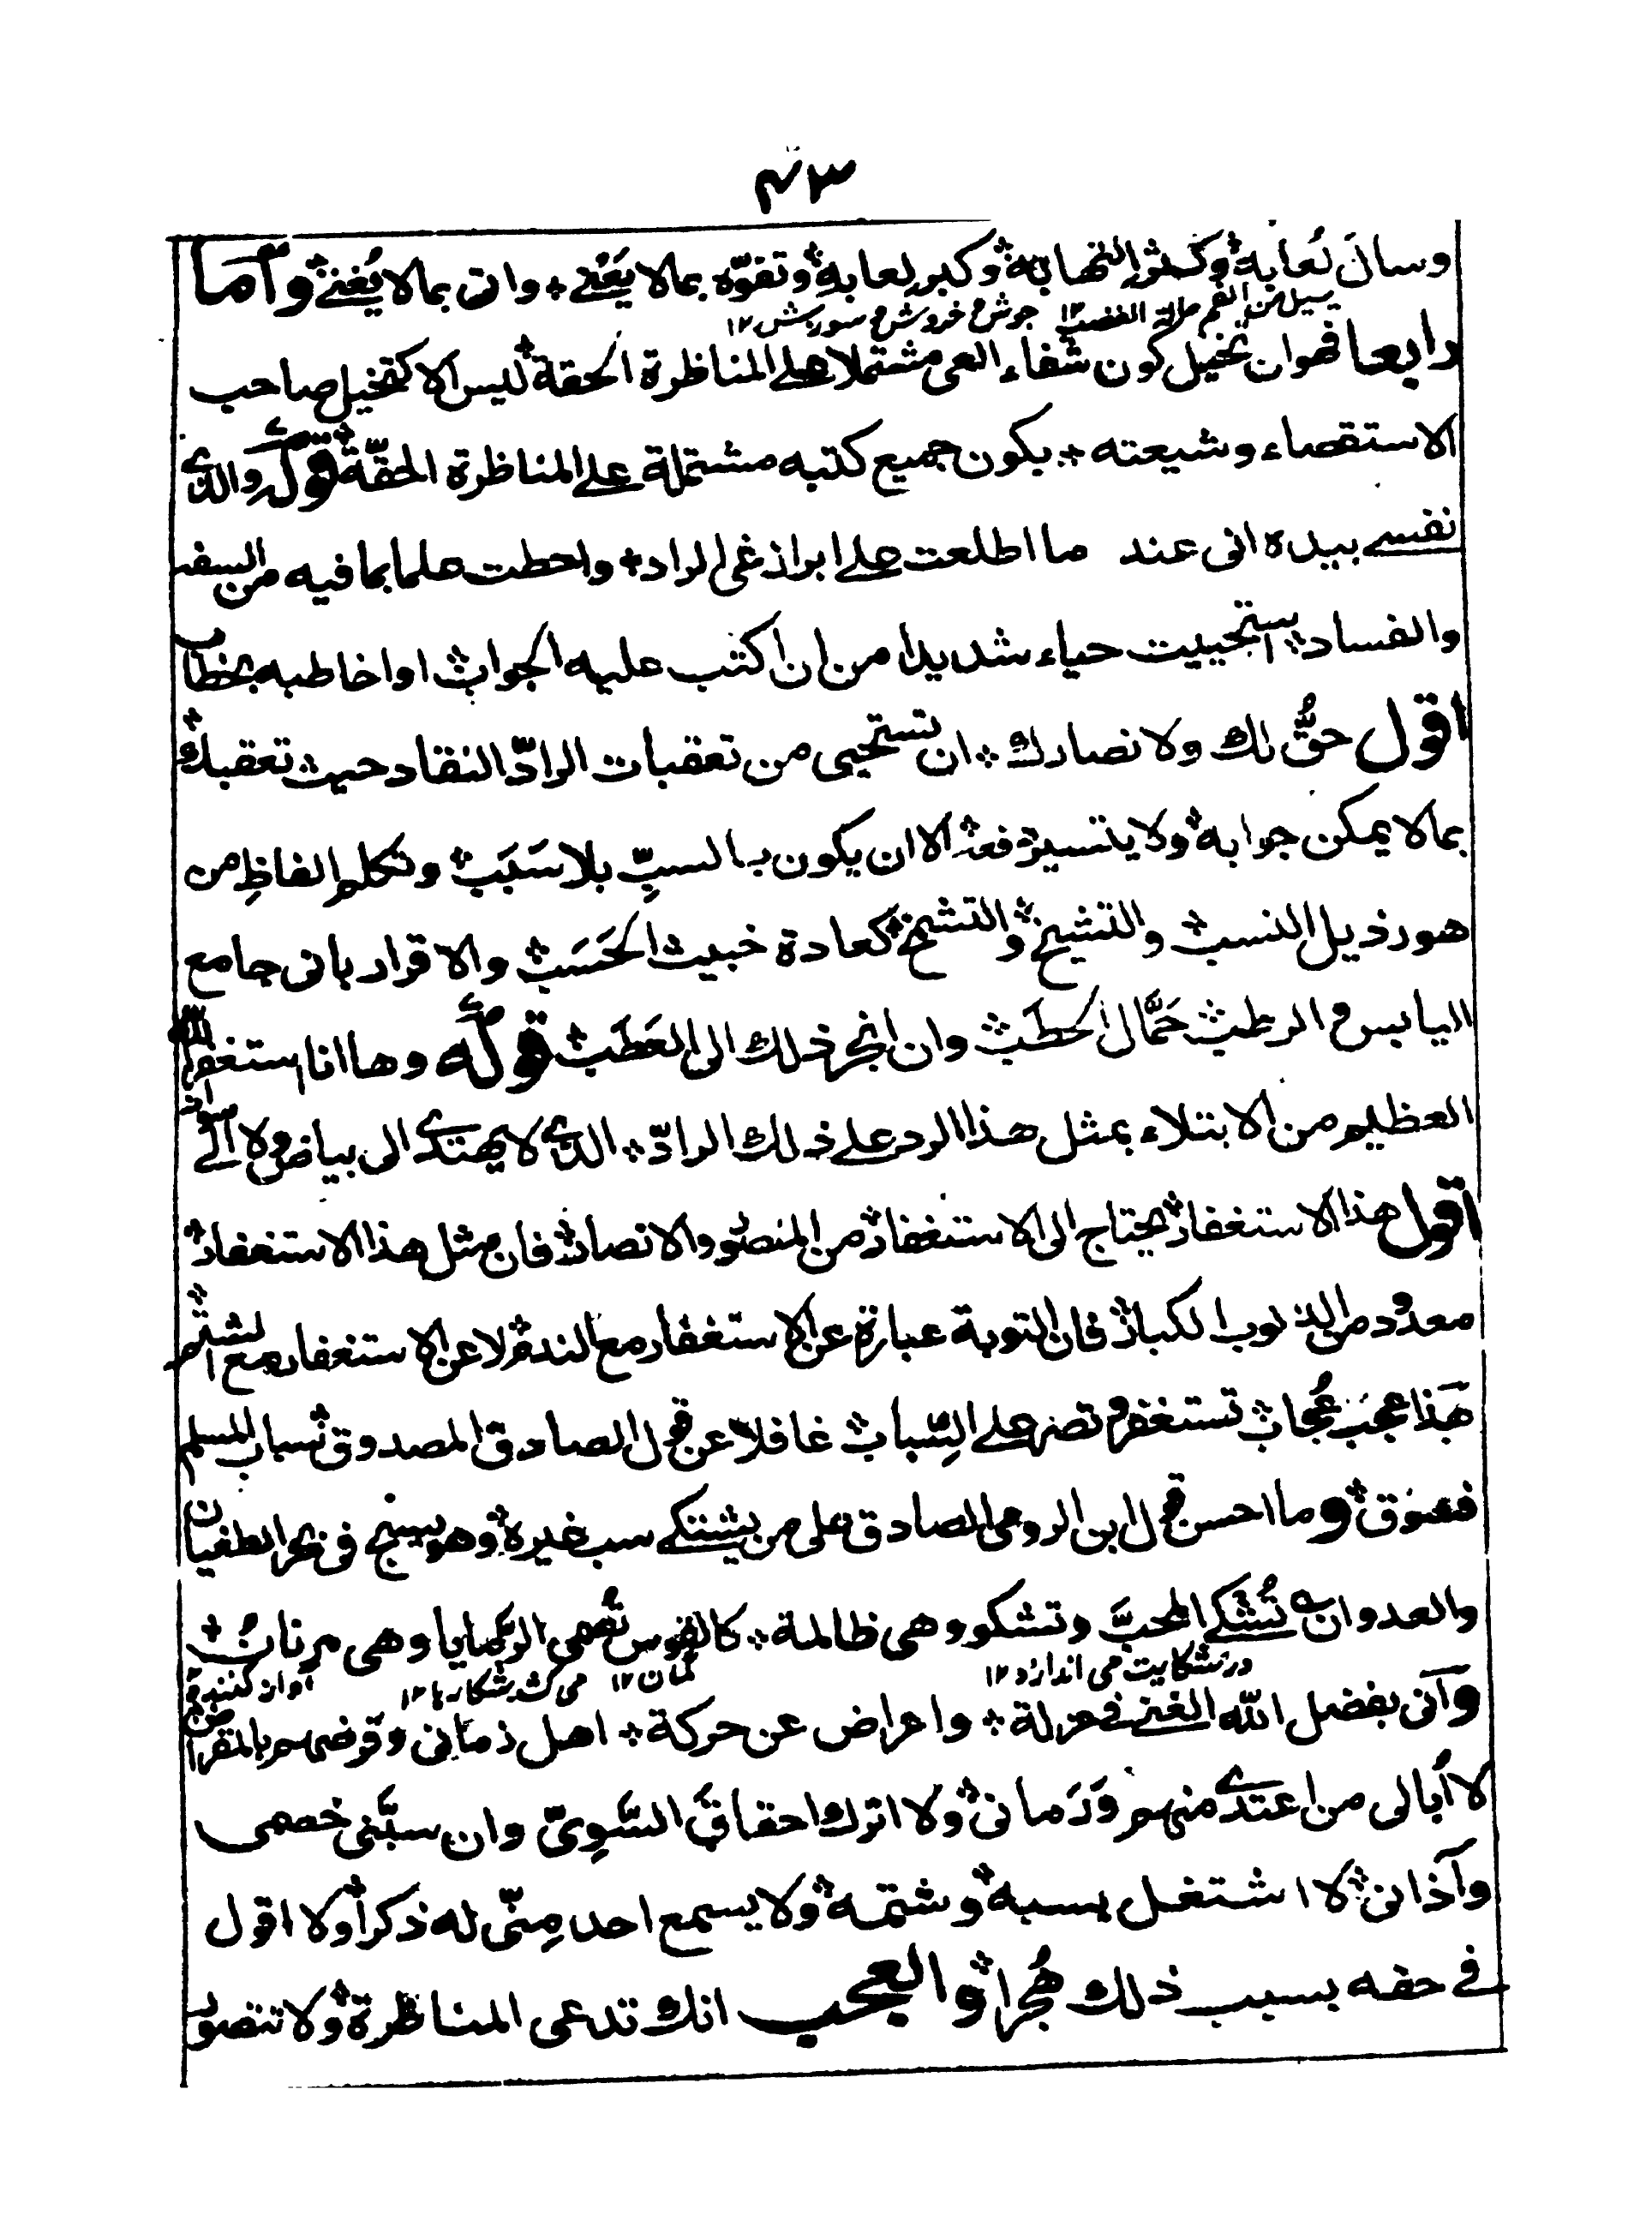 ٤٣
وسال لُعابه وكثر التهابه وكبر لعابه وتفوّه بما لا يَعْنے واتى بما لا يُغنے واَمّا
يسيل من الفم حالة الغضب ١٢ جوش و خروش و سورش ١٢
رابعا فهو ان تخيل كون شفاء العى مشتملا علے المناظرة الحقة ليس الا كتخيل صاحب
الاستقصاء وشيعته بكون جميع كتبه مشتملة علے المناظرة الحقّة قوله والذي
نفسے بيده انى عند ما اطلعت علے ابراز غى الراد واحطت علما بما فيه من السفه
والفساد استحييت حياء شديدا من ان اكتب عليه الجواب او اخاطبه بخطاب
اقول حقُّ لك ولانصارك ان تستحيى من تعقبات الرادّ النقاد حيث تعقبك
بما لا يمكن جوابه ولا يتسير دفعه الا ان يكون بالسبِّ بلا سَبَب وتكلم الفاظِ من
هو رذيل النسب والتشيخ والتشيخ كعادة خبيث الحَسَب والاقرار بانى جامع
اليابس و الرطب حَمَّال الحطَب وان انجر ذلك الى العَطَب قوله وها انا استغفر الله
العظيم من الابتلاء بمثل هذا الرد علے ذلك الرادّ الذي لا يهتدے الى بياض ولا الے سواد
اقول هذا الاستغفار يحتاج الى الاستغفار من المنصور والانصار فان مثل هذا الاستغفار
معدود من الذنوب الكبار فان التوبة عبارة عن الاستغفار مع الندم لا عن الاستغفار مع الشتم
هَذا عجَب عُجاب تستغفر و تصر علے السِّباب غافلا عن قول الصادق المصدوق سباب المسلم
فسوق وما احسن قول ابن الرومى الصادق على من يشتكے سب غيره وهو يسبح فى بحر الطغيان
والعدوان تُشْكے المحبَّ وتشكو وهى ظالمة كالقوس تُصمى الرمايا وهى مرنانُ
در شكايت مى اندازد ١٢ كمان ١٢ مى كشد شكار را ١٢ آواز كننده
وآنى بفضل الله الغنے فے عزلة واعراض عن حركة اهل زمانى وقرضهم بالمقراض
لا اُبالى من اعتدے منهم ورَمانى ولا اترك احقاق السَّوِىّ وان سبَّنى خصمى
وآذانى لا اشتغل بسبه وشتمه ولا يسمع احد مِنّى له ذكرا ولا اقول
فے حقه بسبب ذلك هُجرا والعجب انك تدعى المناظرة ولا تتصور